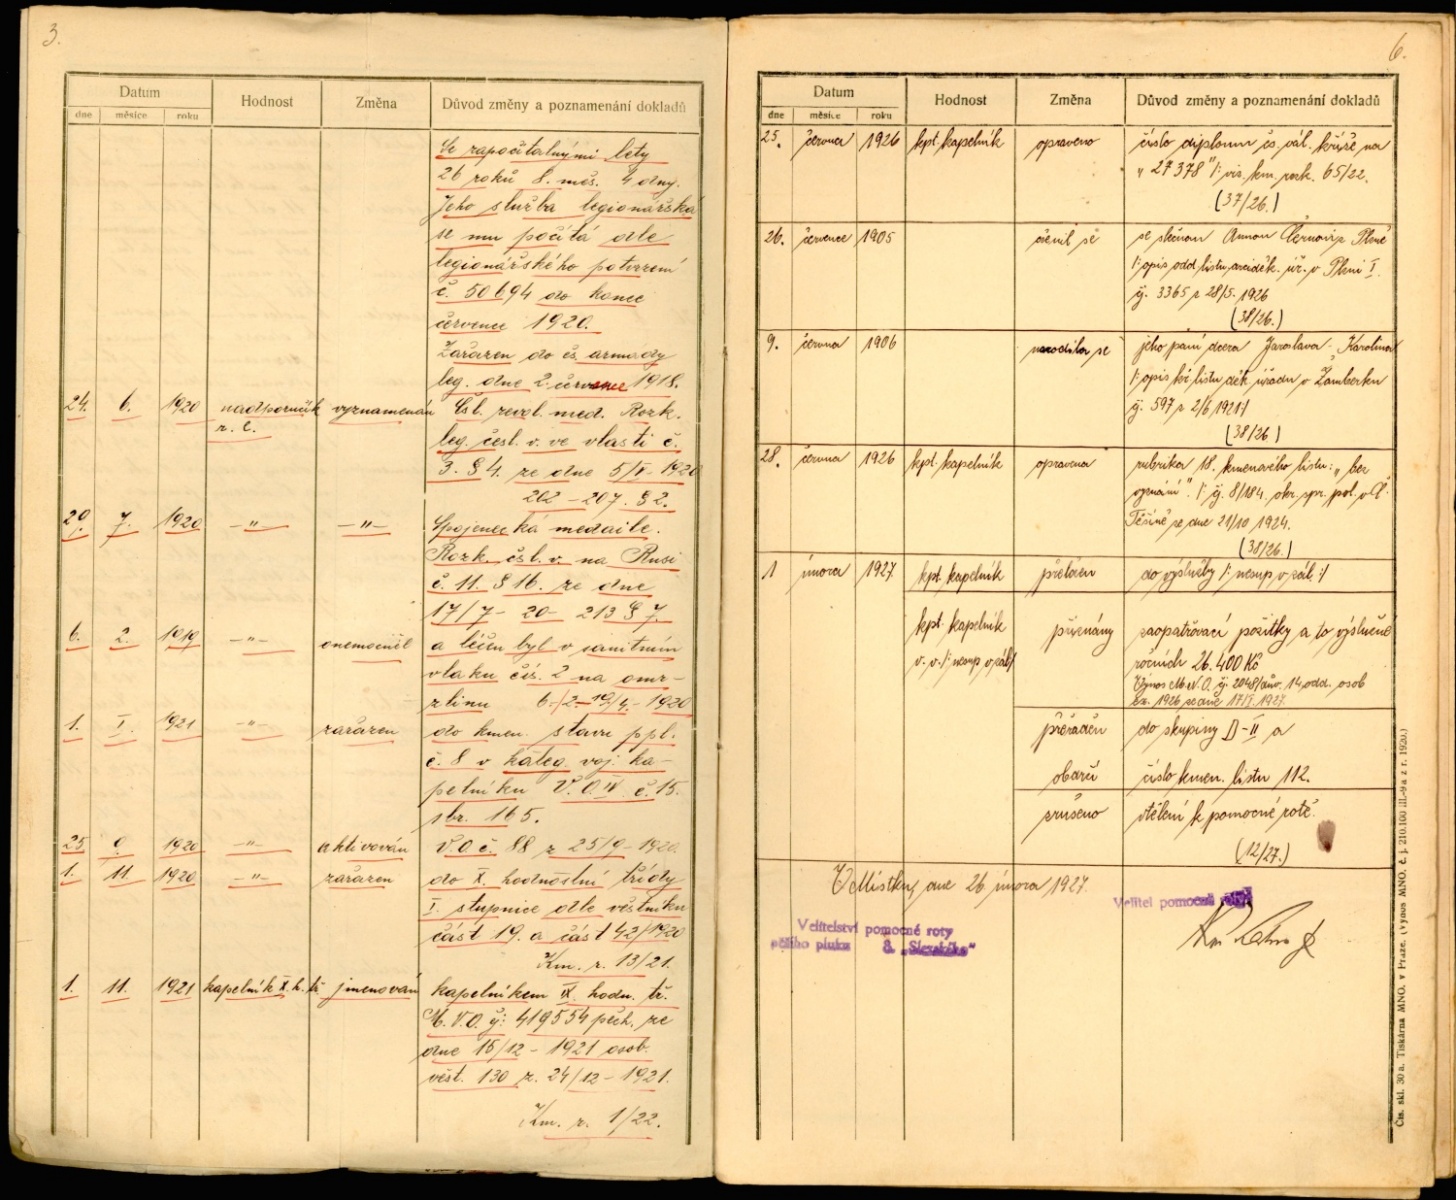 3.
Datum Hodnost Změna Důvod změny a poznamenání dokladů
dne měsíce roku
Se započitalnými lety
26 roků 8. měs. 4 dny.
Jeho služba legionářská
se mu počítá dle
legionářského potvrzení
č. 50694 do konce
července 1920.
Zařazen do čs. armády
leg. dne 2. července 1918.
24. 6. 1920 nadporučík vyznamenán Čsl. revol. med. Rozk.
r. l. leg. česl. v. ve vlasti č.
3. § 4. ze dne 5/V-1920
202-207. § 2.
20. 7. 1920 -"- -"- Spojenecká medaile.
Rozk. čsl. v. na Rusi
č. 11. § 16. ze dne
17/7- 20- 213 § 7.
6. 2. 1919 -"- onemocněl a léčen byl v sanitním
vlaku čís. 2 na omr-
zlinu 6./2-19/4.-1920
1. I. 1921 -"- zařazen do kmen. stavu ppl.
č. 8 v kateg. voj. ka-
pelníku V.O. IV. č. 15.
sbr. 165.
25 9. 1920 -"- aktivován V.O č. 88 z 25/9-1920.
1. 11. 1920 -"- zařazen do X. hodnostní třídy
I. stupnice dle věstníku
část 19. a část 42/1920
Km. r. 13/21.
1. 11. 1921 kapelník X. h. tř. jmenován kapelníkem IX. hodn. tř.
M.V.O. čj: 419554 pěch. ze
dne 15/12-1921 osob.
věst. 130 z. 24/12-1921.
Km. r. 1/22.
6.
Datum Hodnost Změna Důvod změny a poznamenání dokladů
dne měsíce roku
25. června 1926 kpt. kapelník opraveno číslo diplomu čs. vál. kříže na
"27378" /: viz. km. rozk. 65/22.
(37/26.)
26. července 1905 oženil se se slečnou Annou v Plzni
/: opis odd. listu arciděk. úř. v Plzni I.
čj. 3365 z 28/5. 1926
(38/26.)
9. června 1906 narodila se jeho paní dcera Jaroslava - Karolina
/: opis kř. listu děk. úřadu v Žamberku
čj. 597 z 2/6 1921 :/
(38/26)
28. června 1926 kpt. kapelník opravena rubrika 18. kmenového listu: "bez
vyznání". /: čj. 8/184. okr. spr. pol. v Č.
Těšíně ze dne 21/10 1924.
(38/26.)
1 února 1927 kpt. kapelník přeložen do výslužby /: nesup. v zál. :/
kpt. kapelník přiznány zaopatřovací požitky a to výslužné
v. v. /: nesup. v zál. :/ ročních 26.400 Kč
Výnos M.N.O. čj. 2048/dův. 14. odd. osob
ze dne 17/I. 1927.
přeřaděn do skupiny D-II a
obdrží číslo kmen. listu 112.
zrušeno vtělení k pomocné rotě.
(12/27.)
V Místku, dne 26. února 1927.
Velitel pomocné roty:
Velitelství pomocné roty
pěšího pluku 8. „Slezského"
Čís. skl. 30 a. Tiskárna MNO. v Praze. (Výnos MNO. č. j. 210.100 III.-9 a z r. 1920.)